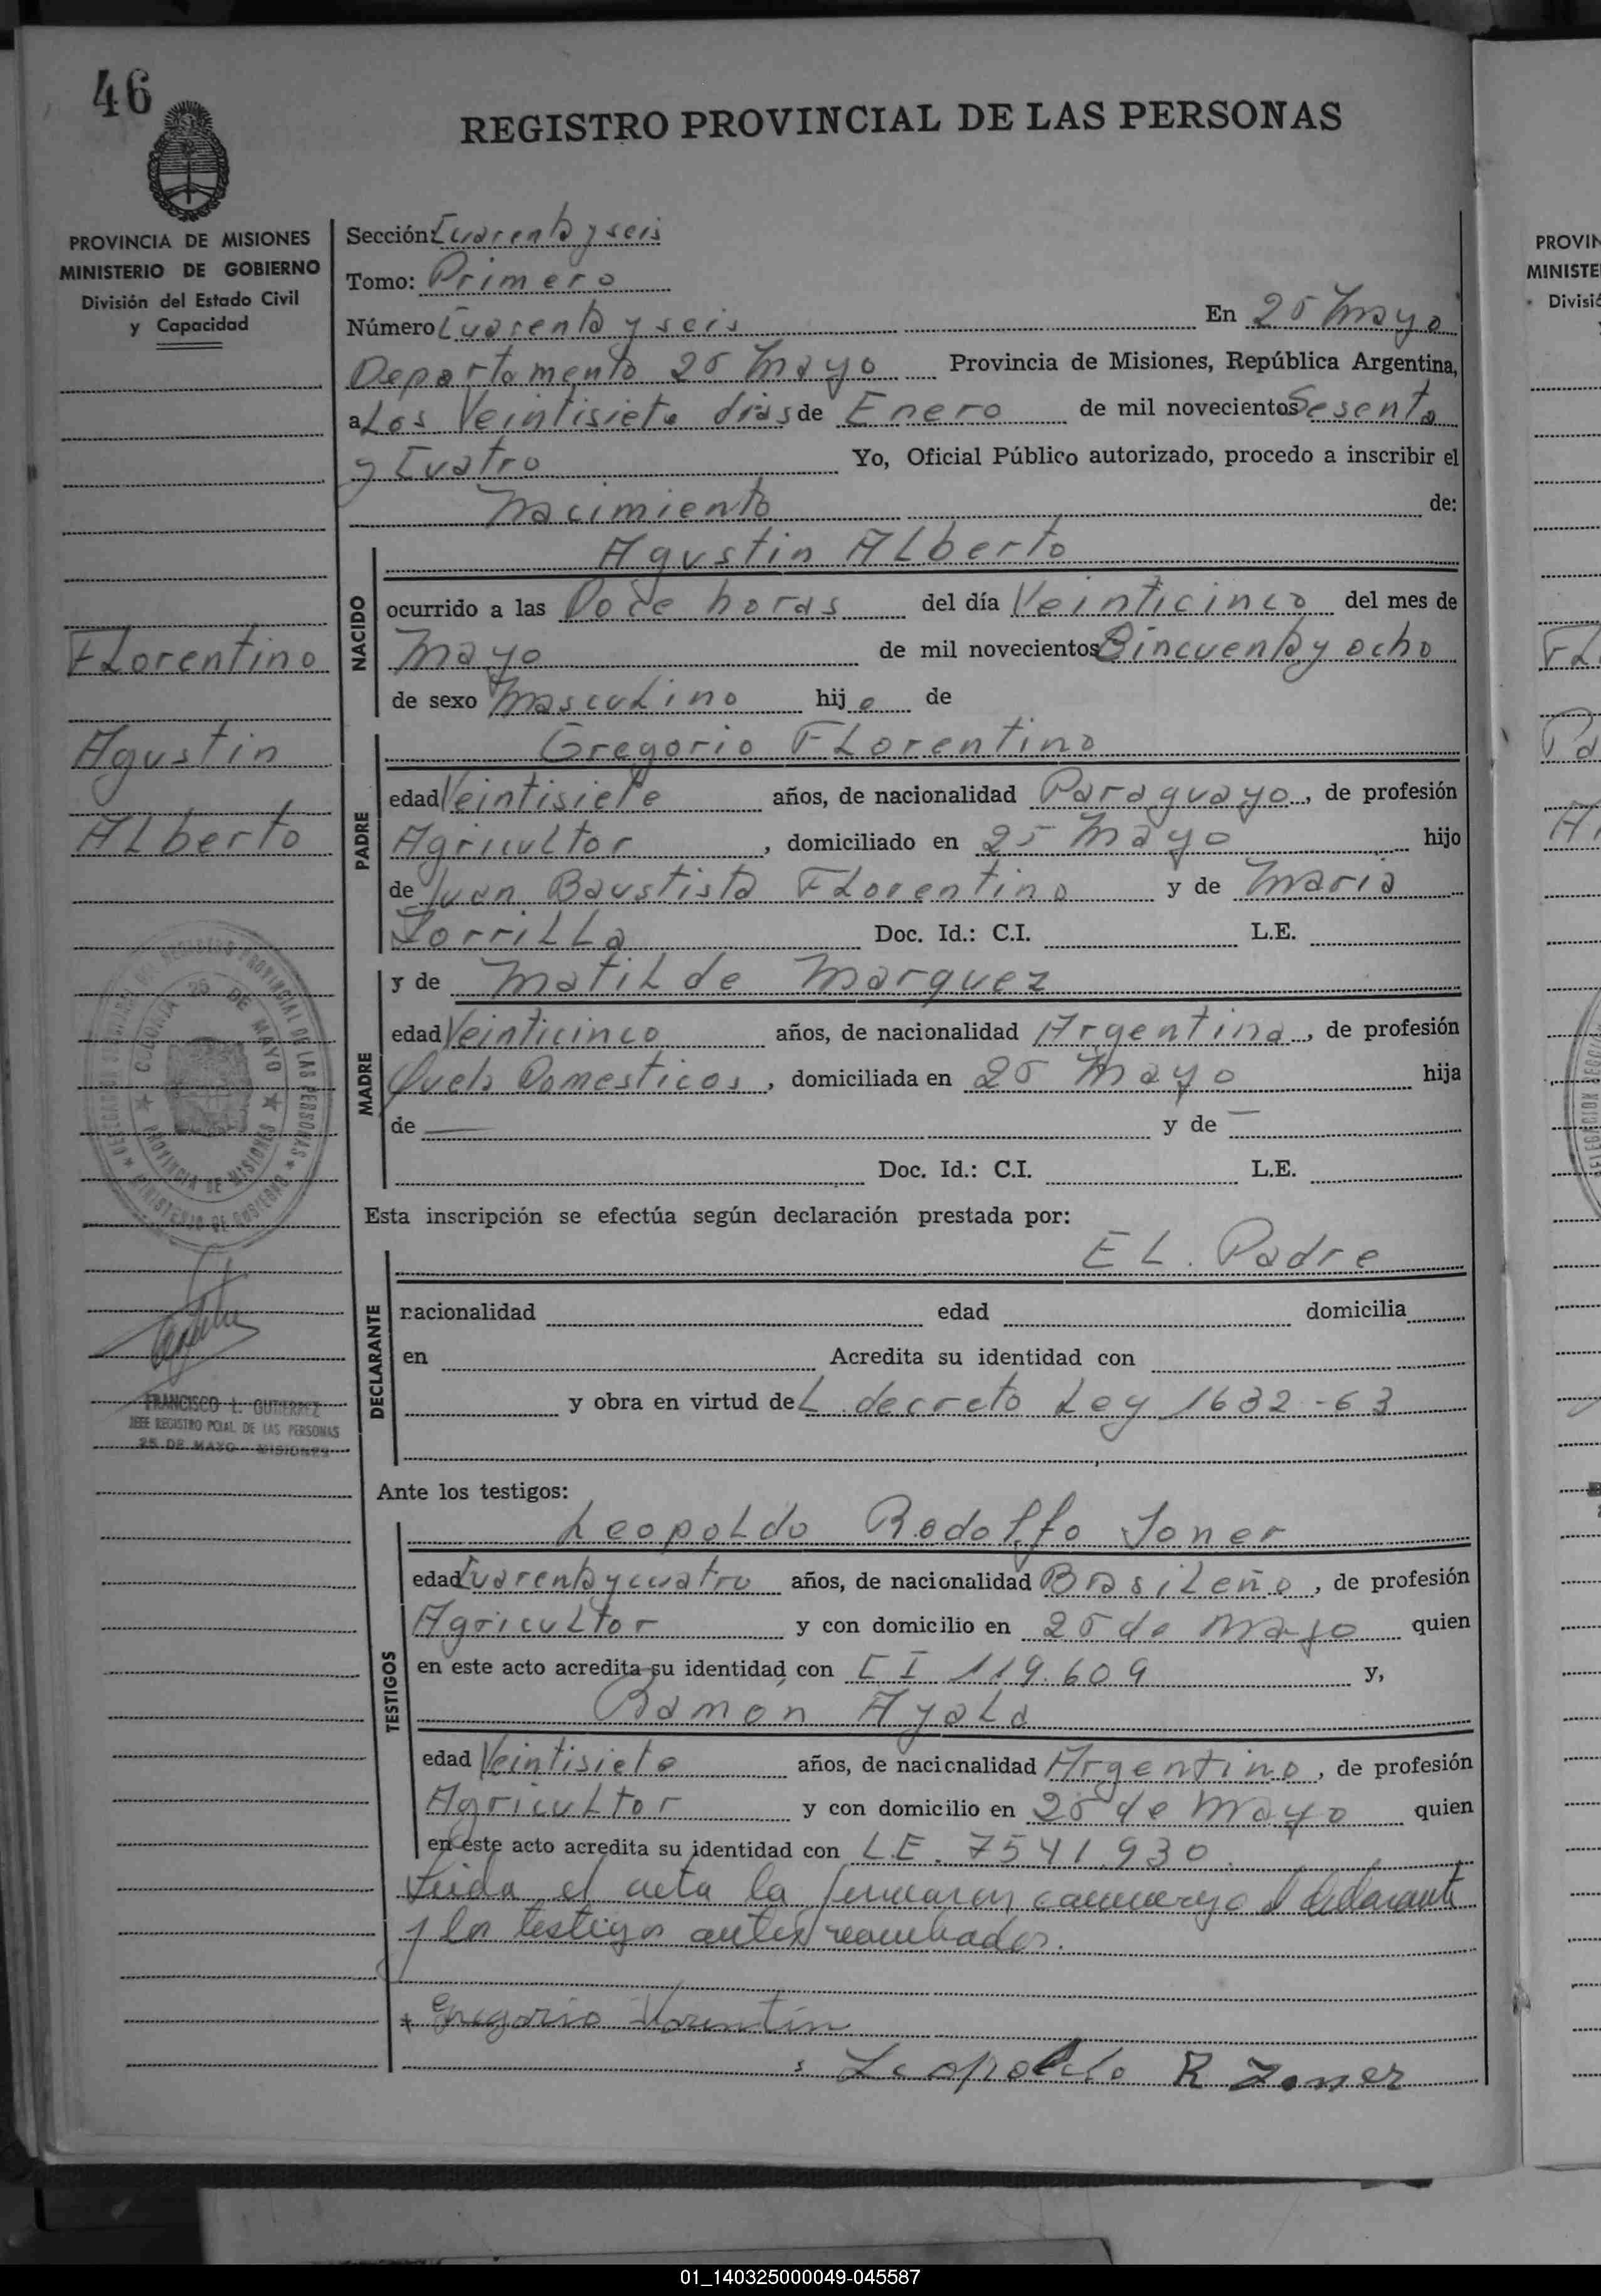 46
REGISTRO PROVINCIAL DE LAS PERSONAS
PROVINCIA DE MISIONES
MINISTERIO DE GOBIERNO
División del Estado Civil
y Capacidad
Sección: Cuarenta y seis
Tomo: Primero
Número Cuarenta y seis En 25 Mayo
Departamento 25 Mayo Provincia de Misiones, República Argentina,
a Los Veintisiete dias de Enero de mil novecientos Sesenta
y Cuatro Yo, Oficial Público autorizado, procedo a inscribir el
Nacimiento de:
NACIDO
Agustin ALberto
ocurrido a las Doce horas del día Veinticinco del mes de
Mayo de mil novecientos Cincuenta y ocho
de sexo MascuLino hijo de
Florentino
Agustin
ALberto
PADRE
Gregorio FLorentino
edad Veintisiete años, de nacionalidad Paraguayo, de profesión
AgricuLtor, domiciliado en 25 Mayo hijo
de Juan Baustista FLorentino y de Maria
Doc. Id.: C.I. L.E.
MADRE
y de MatiLde Marquez
edad Veinticinco años, de nacionalidad Argentina, de profesión
Domesticos, domiciliada en 25 Mayo hija
de — y de —
Doc. Id.: C.I. L.E.
COLONIA 25 DE MAYO
PROVINCIA DE MISIONES
Esta inscripción se efectúa según declaración prestada por:
DECLARANTE
EL. Padre
nacionalidad edad domicilia
en Acredita su identidad con
y obra en virtud de L. decreto Ley 1632-63
FRANCISCO L. GUTIERREZ
JEFE REGISTRO PCIAL DE LAS PERSONAS
25 DE MAYO - MISIONES
Ante los testigos:
TESTIGOS
LeopoLdo RodoLfo Joner
edad Cuarenta y cuatro años, de nacionalidad BrasiLeño, de profesión
AgricuLtor y con domicilio en 25 de Mayo quien
en este acto acredita su identidad con C I 119.609 y,
Ramon AyaLa
edad Veintisiete años, de nacicnalidad Argentino, de profesión
AgricuLtor y con domicilio en 25 de Mayo quien
en este acto acredita su identidad con L.E. 7541.930.
Leida el acta la firmaron conmigo el declarante
y los testigos
Gregorio Florentin
Leopoldo R Joner
PROVIN
MINISTE
Divisió
01_140325000049-045587